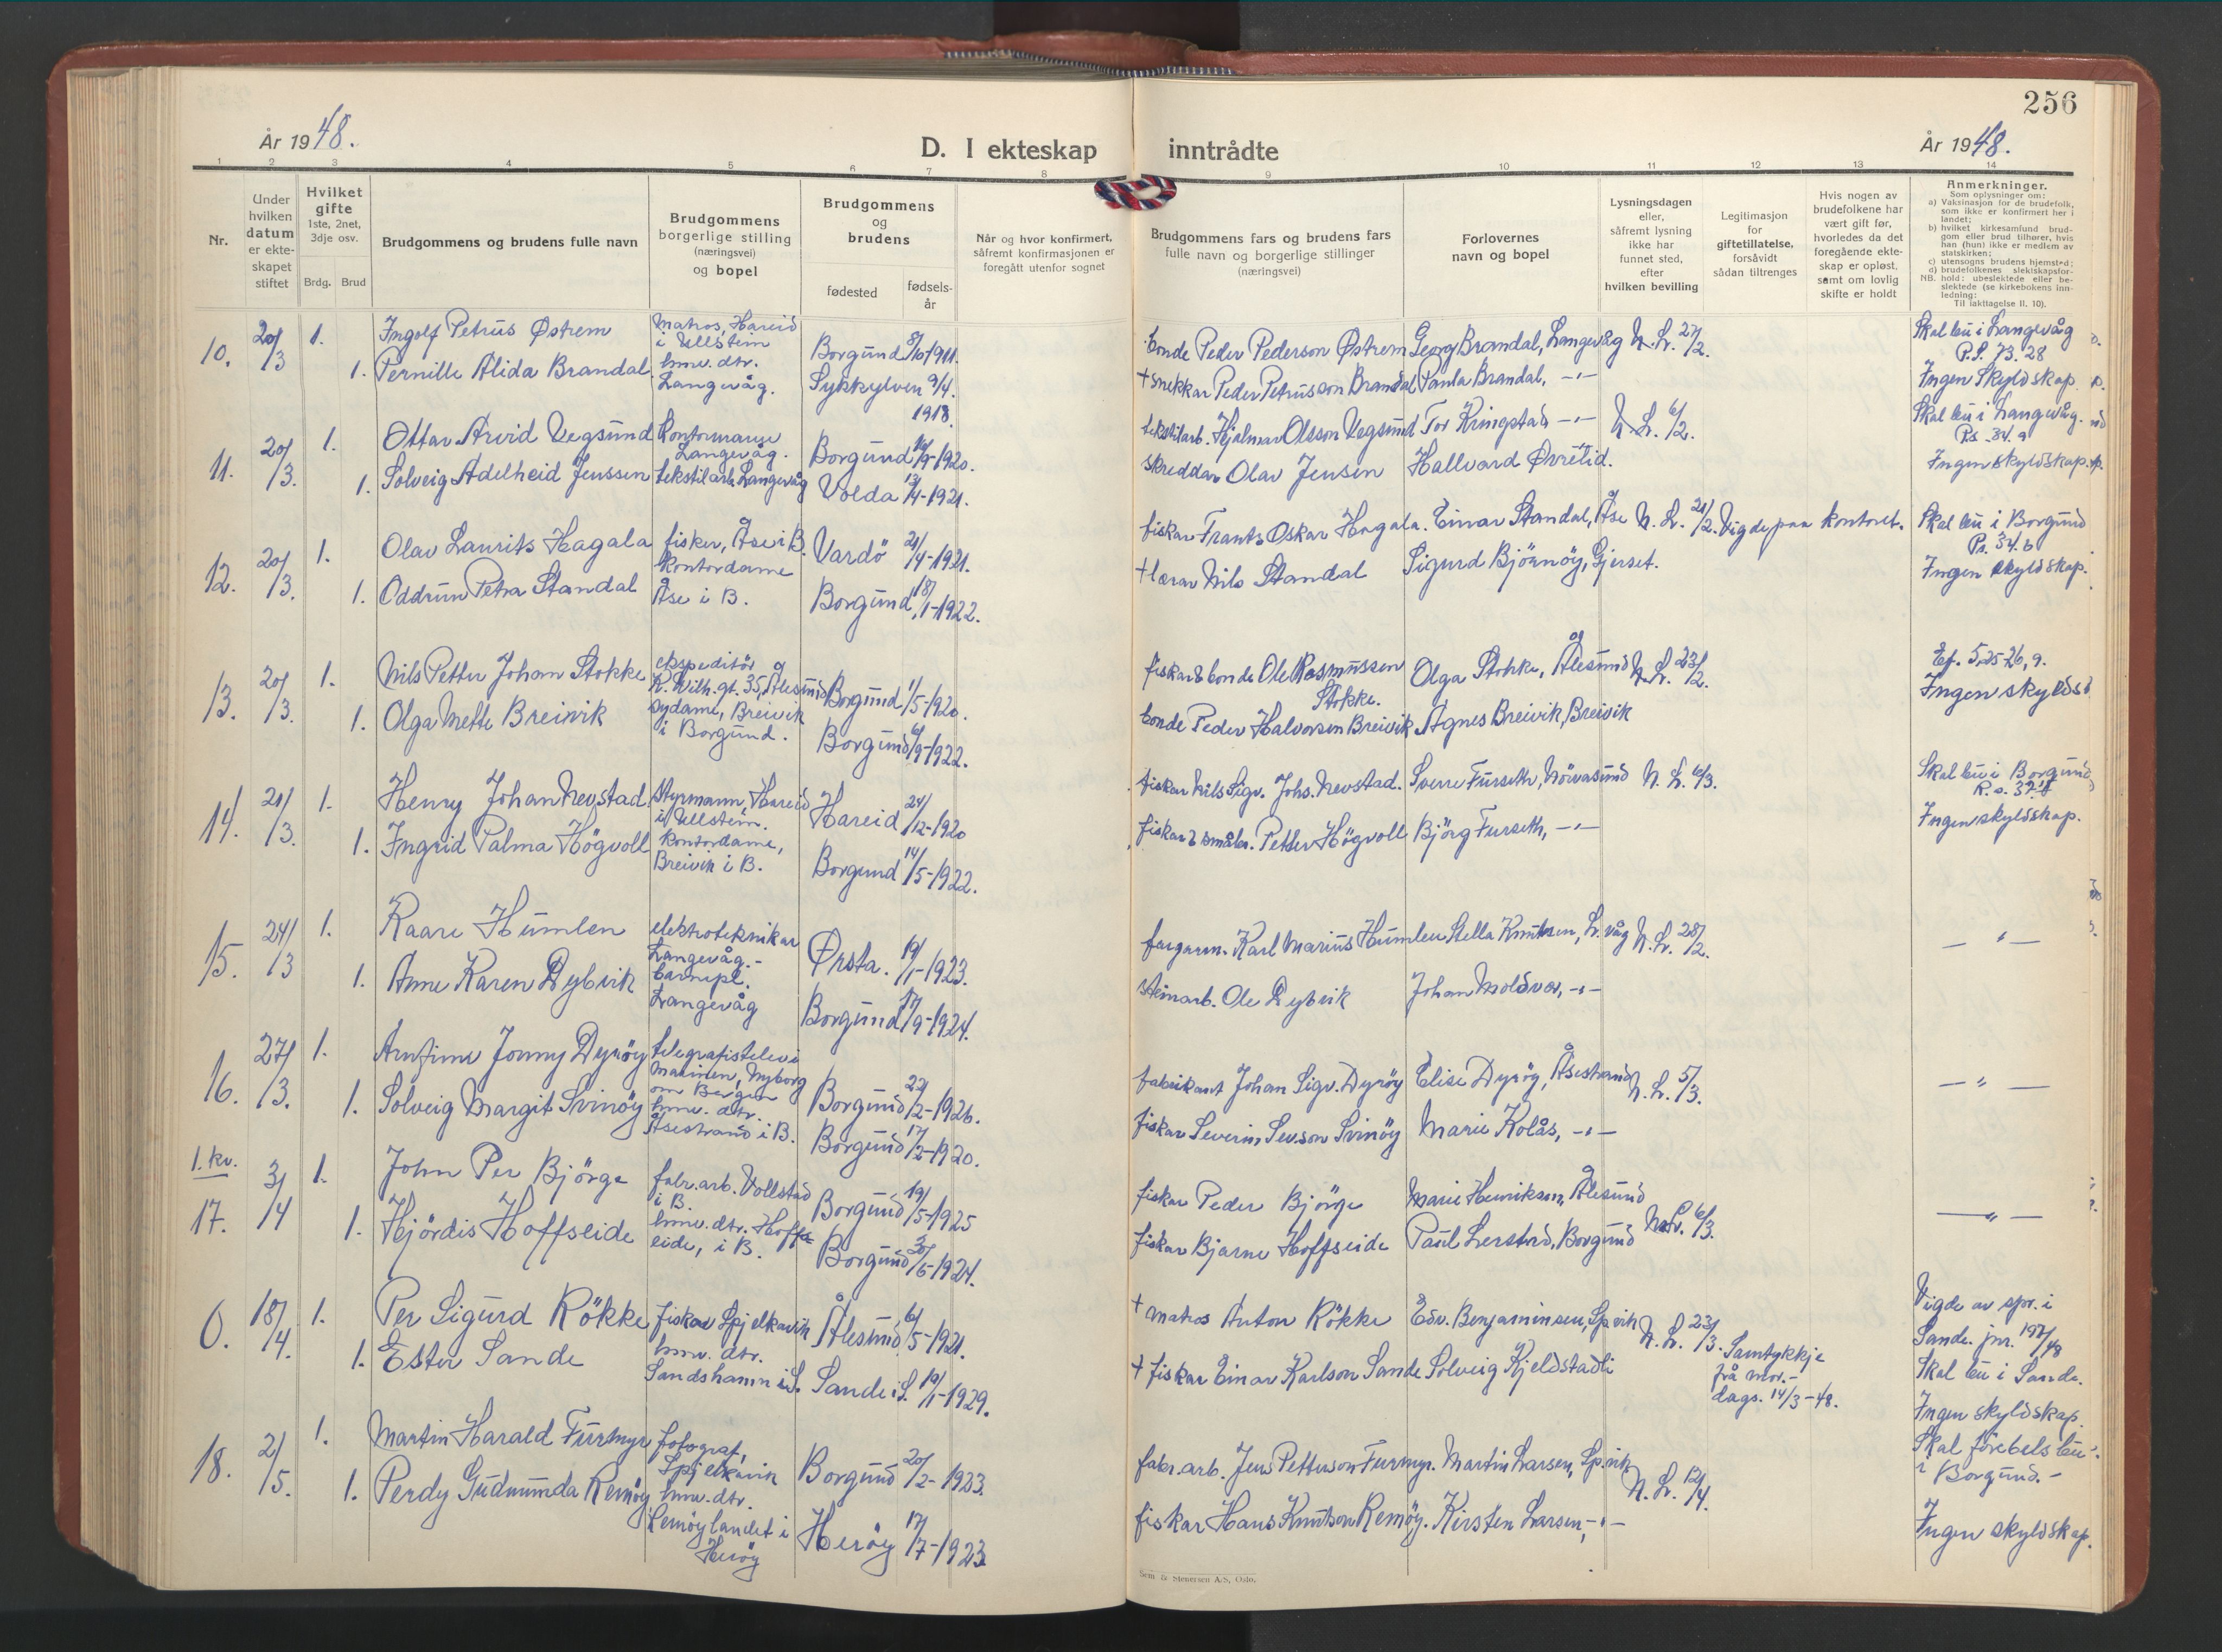 256
År 1948.
D. I ekteskap inntrådte
År 1948.
1 2 3 4 5 6 7 8 9 10 11 12 13 14
Nr.
Under hvilken datum er ekteskapet stiftet
Hvilket gifte
1ste, 2net, 3dje osv.
Brdg. Brud
Brudgommens og brudens fulle navn
Brudgommens borgerlige stilling (næringsvei) og bopel
Brudgommens og brudens
fødested
fødselsår
Når og hvor konfirmert, såfremt konfirmasjonen er foregått utenfor sognet
Brudgommens fars og brudens fars fulle navn og borgerlige stillinger (næringsvei)
Forlovernes navn og bopel
Lysningsdagen eller, såfremt lysning ikke har funnet sted, efter hvilken bevilling
Legitimasjon for giftetillatelse, forsåvidt sådan tiltrenges
Hvis nogen av brudefolkene har vært gift før, hvorledes da det foregående ekteskap er opløst, samt om lovlig skifte er holdt
Anmerkninger.
Som oplysninger om:
a) Vaksinasjon for de brudefolk, som ikke er konfirmert her i landet;
b) hvilket kirkesamfund brudgom eller brud tilhører, hvis han (hun) ikke er medlem av statskirken;
c) utensogns brudens hjemsted;
d) brudefolkenes slektskapsforhold: ubeslektede eller beslektede (se kirkebokens innledning:
NB.
Til iakttagelse II. 10).
10. 20/3 1. Ingolf Petrus Østrem Matros, Hareid i Ullstein Borgund 1911. bonde Peder Pederson Østrem Georg Brandal, Langevåg N. L. 27/2. Skal bu i Langevåg
P.S. 73. 28
1. Pernille Alida Brandal hmv. dtr. Langevåg. Sykkylven 9/4. 1918. + snekkar Peder Petrusson Brandal Paula Brandal, -"- Ingen Skyldskap.
11. 20/3. 1. Ottar Arvid Vegsund Kontormann Langevåg. Borgund 1920. tekstilarb. Hjalmar Olsson Vegsund Tor Kringstad -"- N. L. 6/2. Skal bu i Langevåg.
Ps. 34. 9
1. Solveig Adelheid Jenssen tekstilarb. Langevåg Volda 1921. skreddar Olav Jensen Hallvard Øvretid. Ingen skyldskap.
12. 20/3. 1. Olav Laurits Hagala fisker, Åse i B. Vardö 21/4-1921. fiskar Frants Oskar Hagala. Einar Standal, Åse N. L. 21/2. Vigde paa kontoret. Skal bu i Borgund
Ps. 34. 6
1. Oddrun Petra Standal Kontordame Åse i B. Borgund 18/1-1922. + lærar Nils Standal Sigurd Björnöy, Gjerset. Ingen skyldskap.
13. 20/3. 1. Nils Petter Johan Stokke ekspeditör K. Wilh. gt. 35, Ålesund Borgund 1/5-1920. fiskar & bonde Ole Rasmussen Stokke. Olga Stokke, Ålesund N. L. 23/2. Ef. 5,25-26, 9.
1. Olga Mette Breivik sydame, Breivik i Borgund. Borgund 6/9-1922. bonde Peder Halvorsen Breivik Agnes Breivik, Breivik Ingen skyldsk
14. 21/3. 1. Henry Johan Nevstad. Styrmann, Hareid i Ullstein. Hareid 24/12-1920 fiskar Nils Sigv. Johs. Nevstad. Sverre Furseth, Nörvasund N. L. 6/3. Skal bu i Borgund
1. Ingrid Palma Högvoll Kontordame, Breivik i B. Borgund 14/5-1922. fiskar & småbr. Petter Högvoll Björg Furseth, -"- Ingen skyldskap.
15. 24/3 1. Kaare Humlen elektroteknikar Langevåg. - Ørsta. 19/1-1923. fargarm. Karl Marius Humlen Stella Knutsen, L. våg N. L. 28/2. - " -
1. Anne Karen Dybvik barnepl. Langevåg Borgund 17/9-1924. Steinarb. Ole Dybvik Johan Moldvær, -"-
16. 27/3. 1. Arnfinn Jonny Dyröy telegrafistelev i Marinen, Nyborg om Bergen Borgund 22/2-1926. fabrikant Johan Sigv. Dyröy Elise Dyröy, Åsestrand N. L. 5/3. - " -
1. Solveig Margit Svinöy hmv. dtr. Åsestrand i B. Borgund 17/2-1920. fiskar Severin Sev.son Svinöy Marie Kolås, -"-
1. kv.
17. 3/4 1. John Per Björge fabr.arb. Vollstad i B. Borgund 19/5-1925 fiskar Peder Björge Marie Henriksen, Ålesund N. L. 6/3. - " -
1. Hjördis Hoffseide hmv. dtr. Hoffseide, i B. Borgund 30/6-1924. fiskar Bjarne Hoffseide Paul Lerstad, Borgund
0. 18/4. 1. Per Sigurd Rökke fiskar Spjelkavik Ålesund 6/5-1921. + matros Anton Rökke Edv. Benjaminsen, Sp.vik N. L. 23/3. Samtykkje frå mor. - dags. 14/3-48. Vigde av spr. i Sande. jnr. 197/48
1. Ester Sande hmv. dtr. Sandshamn i S. Sande i S. 19/1-1929. + fiskar Einar Karlson Sande Solveig Kjeldstadli Skal bu i Sande.
Ingen skyldskap.
18. 2/5. 1. Martin Harald Furmyr fotograf, Spjelkavik Borgund 20/2-1923. fabr.arb. Jens Petterson Furmyr. Martin Larsen, Sp.vik N. L. 12/4. Skal förebels bu i Borgund. -
1. Perdy Gudmunda Remöy hmv. dtr. Remöylandet i Heröy Heröy 17/7-1923 fiskar Hans Knutson Remöy. Kirsten Larsen, -"- Ingen skyldskap.
Sem & Stenersen A/S, Oslo.